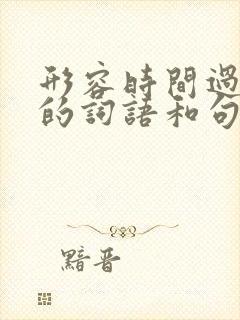 形容時間過
的詞語和句
黯晋